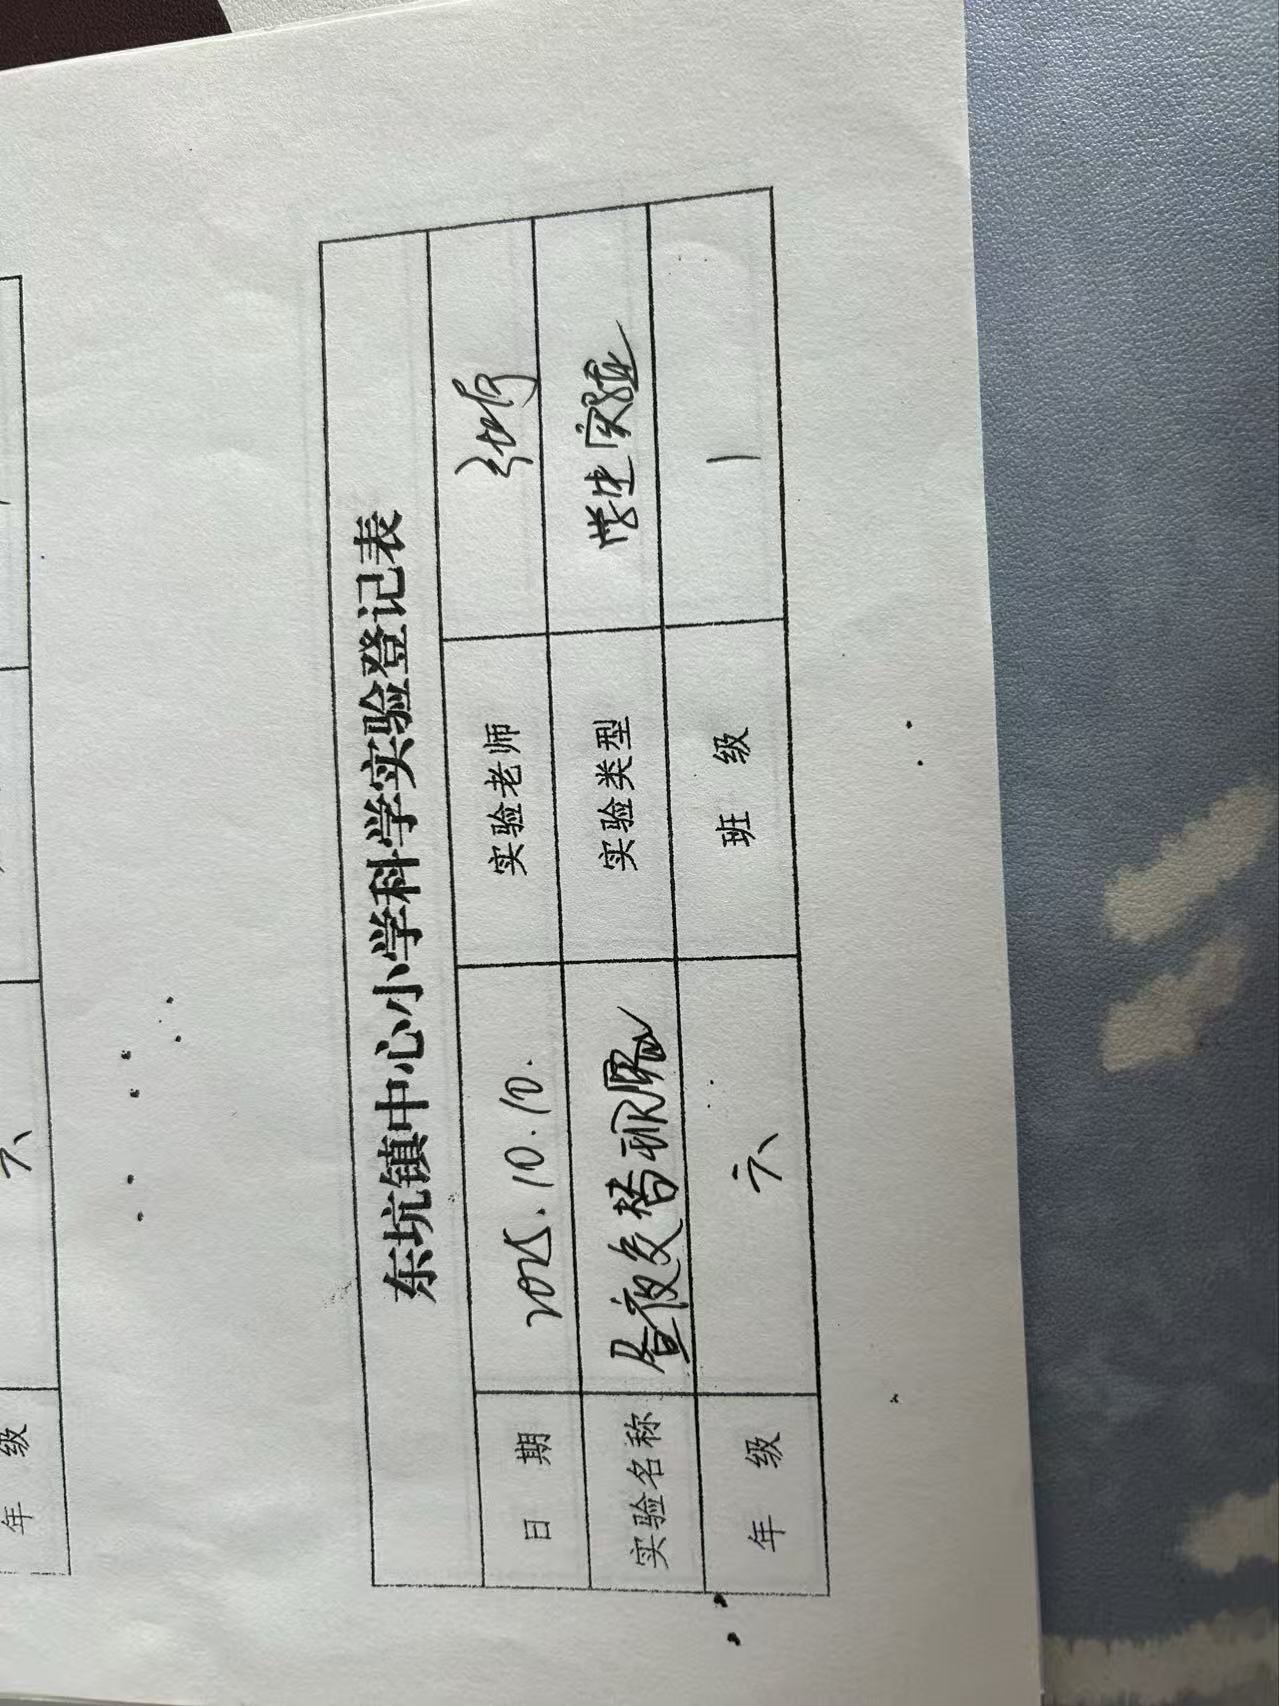 年 级 六
东坑镇中心小学科学实验登记表
日 期 2025.10.10. 实验老师
实验名称 昼夜交替现象 实验类型 学生实验
年 级 六 班 级 1